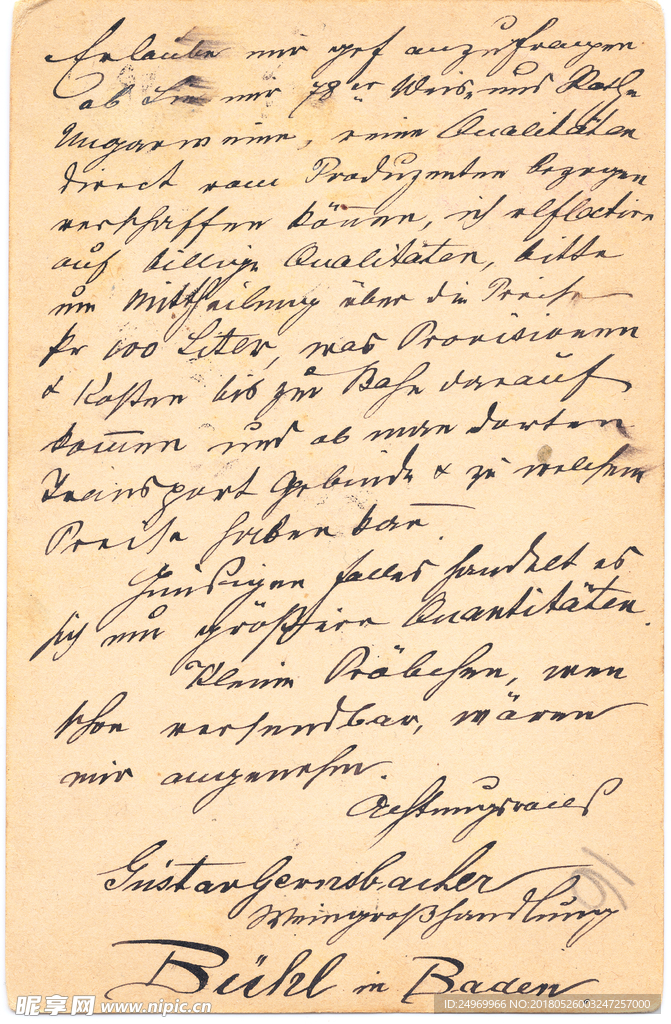 Erlaube mir gef anzufragen
ob Sie mir 78er Weis- und Rothe
Ungarweine, reine Qualitäten
direct vom Produzenten bezogen
verschaffen können, ich reflectire
auf billige Qualitäten, bitte
um Mittheilung über die Preise
pr 100 Liter, was Provisionen
& Kosten bis zur Bahn darauf
kommen und ob man dorten
Transport Gebinde & zu welchem
Preise haben kann
falles handelt es
sich um größere Quantitäten.
Kleine Pröbchen, wen
schon versendbar, wären
mir angenehm.
Achtungsvoll
Gustav Gernsbacher
Weingroßhandlung
Bühl in Baden
91
昵享网 www.nipic.cn
ID:24969966 NO:20180526003247257000